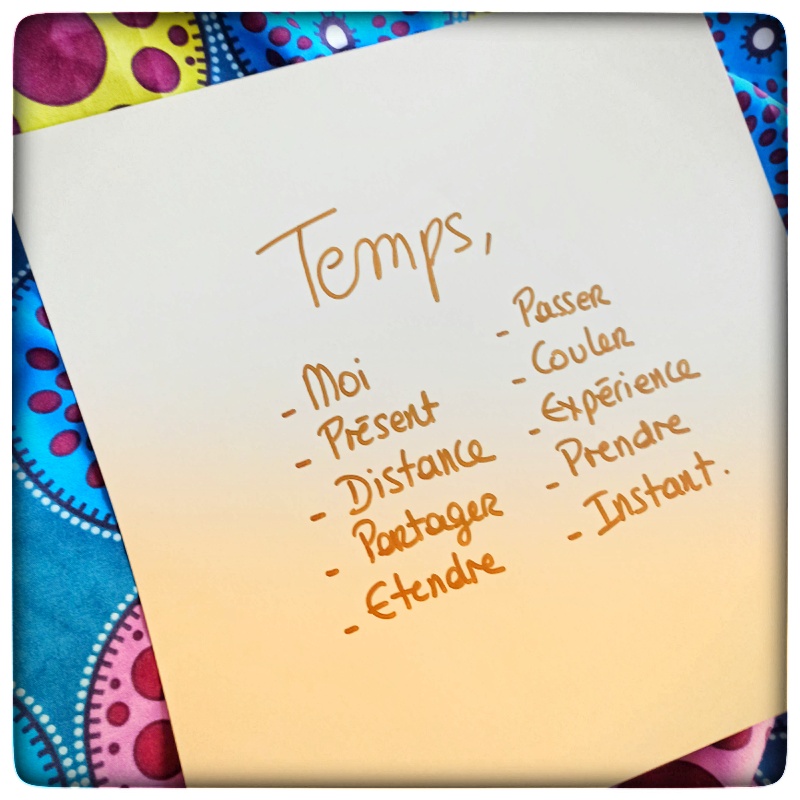 Temps,
- Moi
- Présent
- Distance
- Partager
- Etendre
- Passer
- Couler
- Expérience
- Prendre
- Instant.